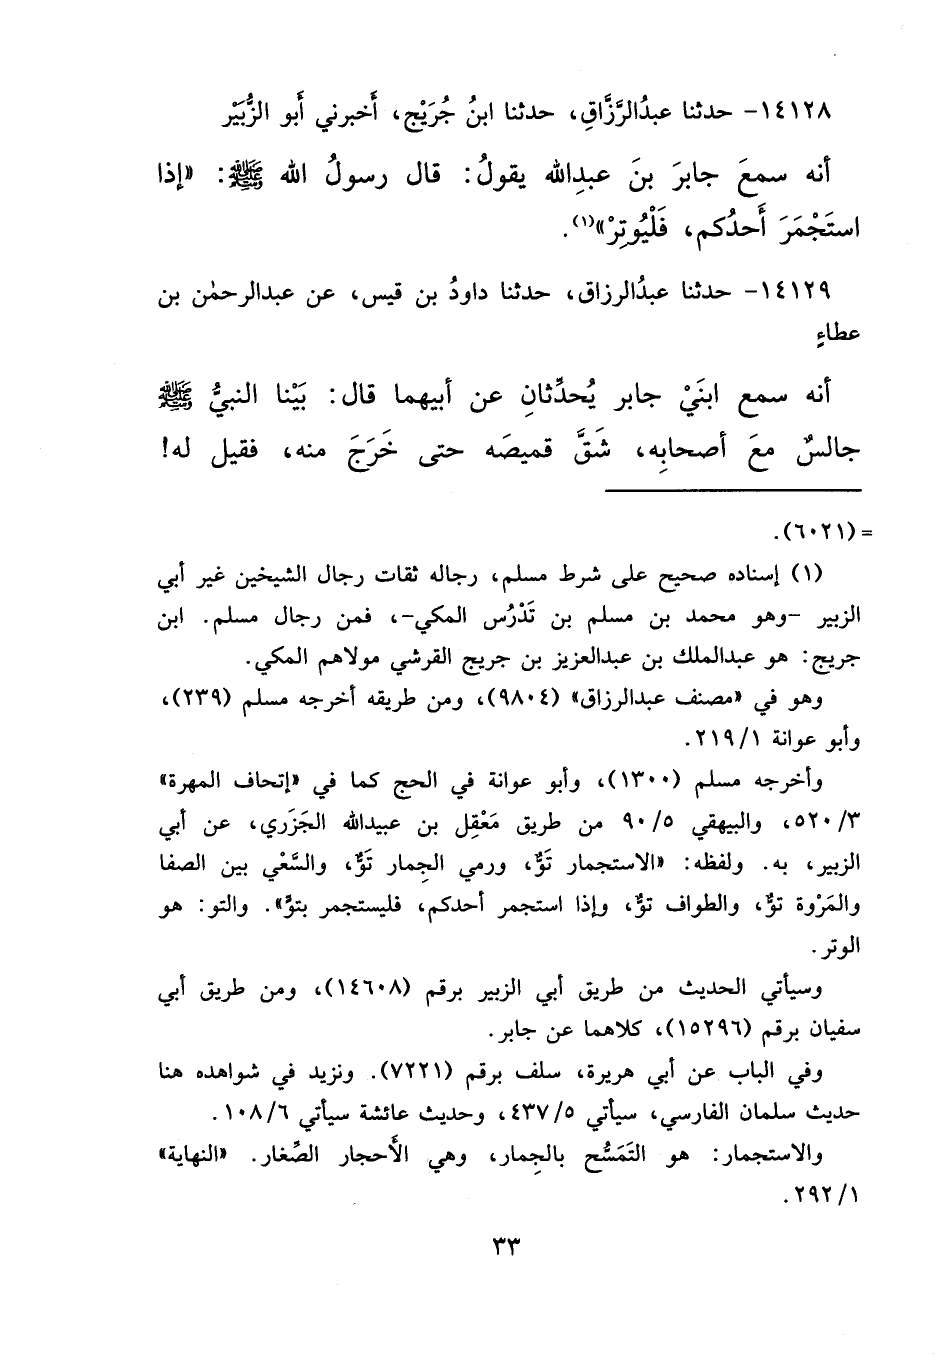 ١٤١٢٨- حدثنا عبدُالرَّزَّاقِ، حدثنا ابنُ جُرَيْج، أَخبرني أَبو الزُّبَيْر
أنه سمعَ جابرَ بنَ عبدِالله يقولُ: قال رسولُ الله ﷺ: «إذا
استَجْمَرَ أَحدُكم، فَلْيُوتِرْ»(١).
١٤١٢٩- حدثنا عبدُالرزاق، حدثنا داودُ بن قيس، عن عبدالرحمٰن بن
عطاءٍ
أنه سمع ابنَيْ جابر يُحدِّثانِ عن أبيهما قال: بَيْنا النبيُّ ﷺ
جالسٌ معَ أصحابِه، شَقَّ قميصَه حتى خَرَجَ منه، فقيل له!
= (٦٠٢١).
(١) إسناده صحيح على شرط مسلم، رجاله ثقات رجال الشيخين غير أبي
الزبير -وهو محمد بن مسلم بن تَدْرُس المكي-، فمن رجال مسلم. ابن
جريج: هو عبدالملك بن عبدالعزيز بن جريج القرشي مولاهم المكي.
وهو في «مصنف عبدالرزاق» (٩٨٠٤)، ومن طريقه أخرجه مسلم (٢٣٩)،
وأبو عوانة ٢١٩/١.
وأخرجه مسلم (١٣٠٠)، وأبو عوانة في الحج كما في «إتحاف المهرة»
٥٢٠/٣، والبيهقي ٩٠/٥ من طريق مَعْقِل بن عبيدالله الجَزَري، عن أبي
الزبير، به. ولفظه: «الاستجمار تَوٌّ، ورمي الجِمار تَوٌّ، والسَّعْي بين الصفا
والمَرْوة توٌّ، والطواف توٌّ، وإذا استجمر أحدكم، فليستجمر بتوٍّ». والتو: هو
الوتر.
وسيأتي الحديث من طريق أبي الزبير برقم (١٤٦٠٨)، ومن طريق أبي
سفيان برقم (١٥٢٩٦)، كلاهما عن جابر.
وفي الباب عن أبي هريرة، سلف برقم (٧٢٢١). ونزيد في شواهده هنا
حديث سلمان الفارسي، سيأتي ٤٣٧/٥، وحديث عائشة سيأتي ١٠٨/٦.
والاستجمار: هو التَمَسُّح بالجِمار، وهي الأَحجار الصِّغار. «النهاية»
٢٩٢/١.
٣٣